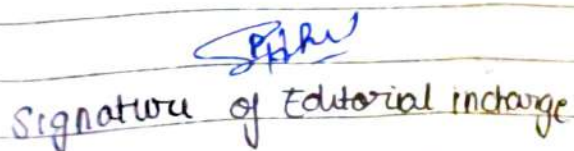 Signature of Editorial incharge